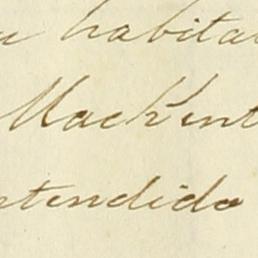 a habita
Mackint
ntendido